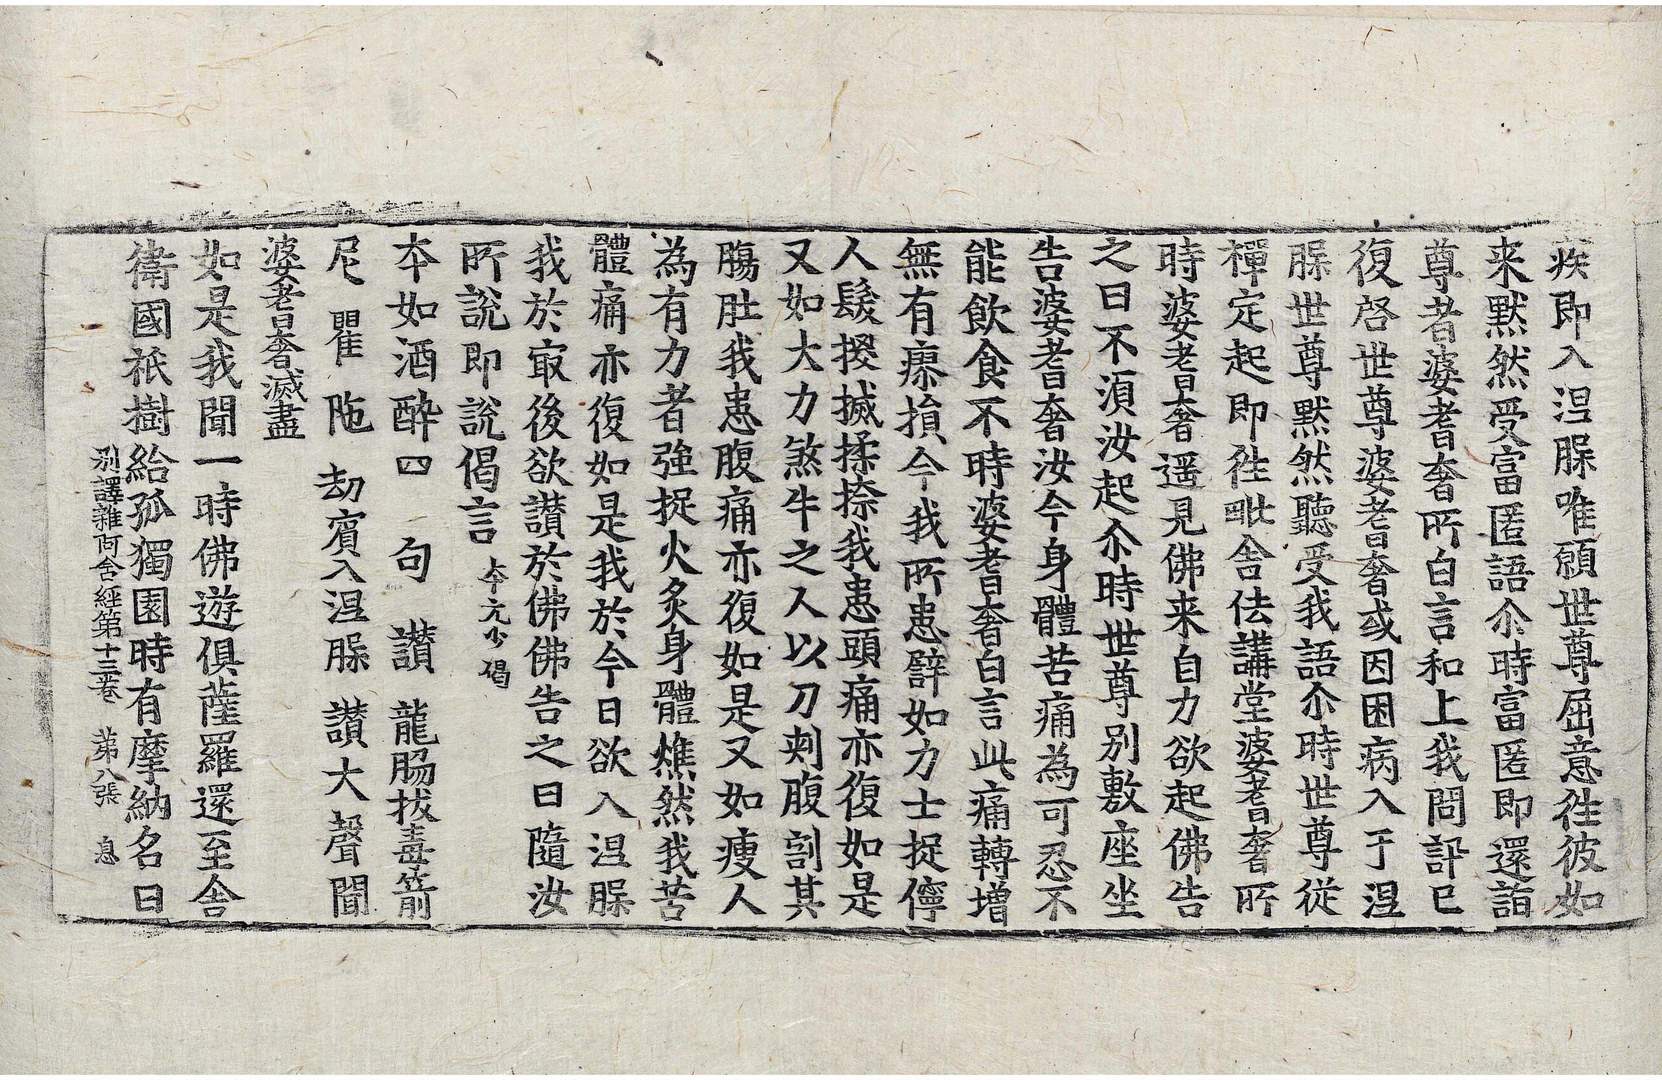 疾即入涅槃唯願世尊屈意往彼如
来黙然受富匿語尒時富匿即還詣
尊者婆耆奢所白言和上我問訊已
復啓世尊婆耆奢或因困病入于涅
槃世尊黙然聽受我語尒時世尊從
禪定起即往毗舍佉講堂婆耆奢所
時婆耆奢遥見佛来自力欲起佛告
之曰不湏汝起尒時世尊別敷座坐
告婆耆奢汝今身體苦痛為可忍不
能飲食不時婆耆奢白言此痛轉增
無有瘳損今我所患譬如力士捉儜
人髮揬搣揉捺我患頭痛亦復如是
又如大力煞牛之人以刀刺腹割其
膓肚我患腹痛亦復如是又如瘦人
為有力者強捉火炙身體燋然我苦
體痛亦復如是我於今日欲入涅槃
我於㝡後欲讃於佛佛告之曰隨汝
所說即說偈言 夲元少偈
夲如酒醉四句 讃龍脇拔毒箭
尼瞿陁劫賓入涅槃 讃大聲聞
婆耆奢滅盡
如是我聞一時佛遊俱薩羅還至舍
衛國祇樹給孤獨園時有摩納名曰
別譯雜阿含經第十三卷 第八張 息